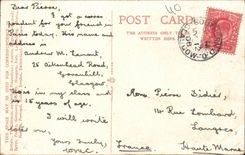 Dear Pierre,
I got a corres-
pondent for your friend in
Paris today. His name and
address is
Andrew M. Tennant,
25 Aikenhead Road,
Govanhill,
Glasgow.
He is in my class and
is 15 years of age.
I will write
later on,
Yours truly,
40
POST CARD
THE ADDRESS ONLY TO BE
WRITTEN HERE
GLASGOW
Mons. Pierre Didier,
14 Rue Lombard,
Langres,
Haute Marne
France